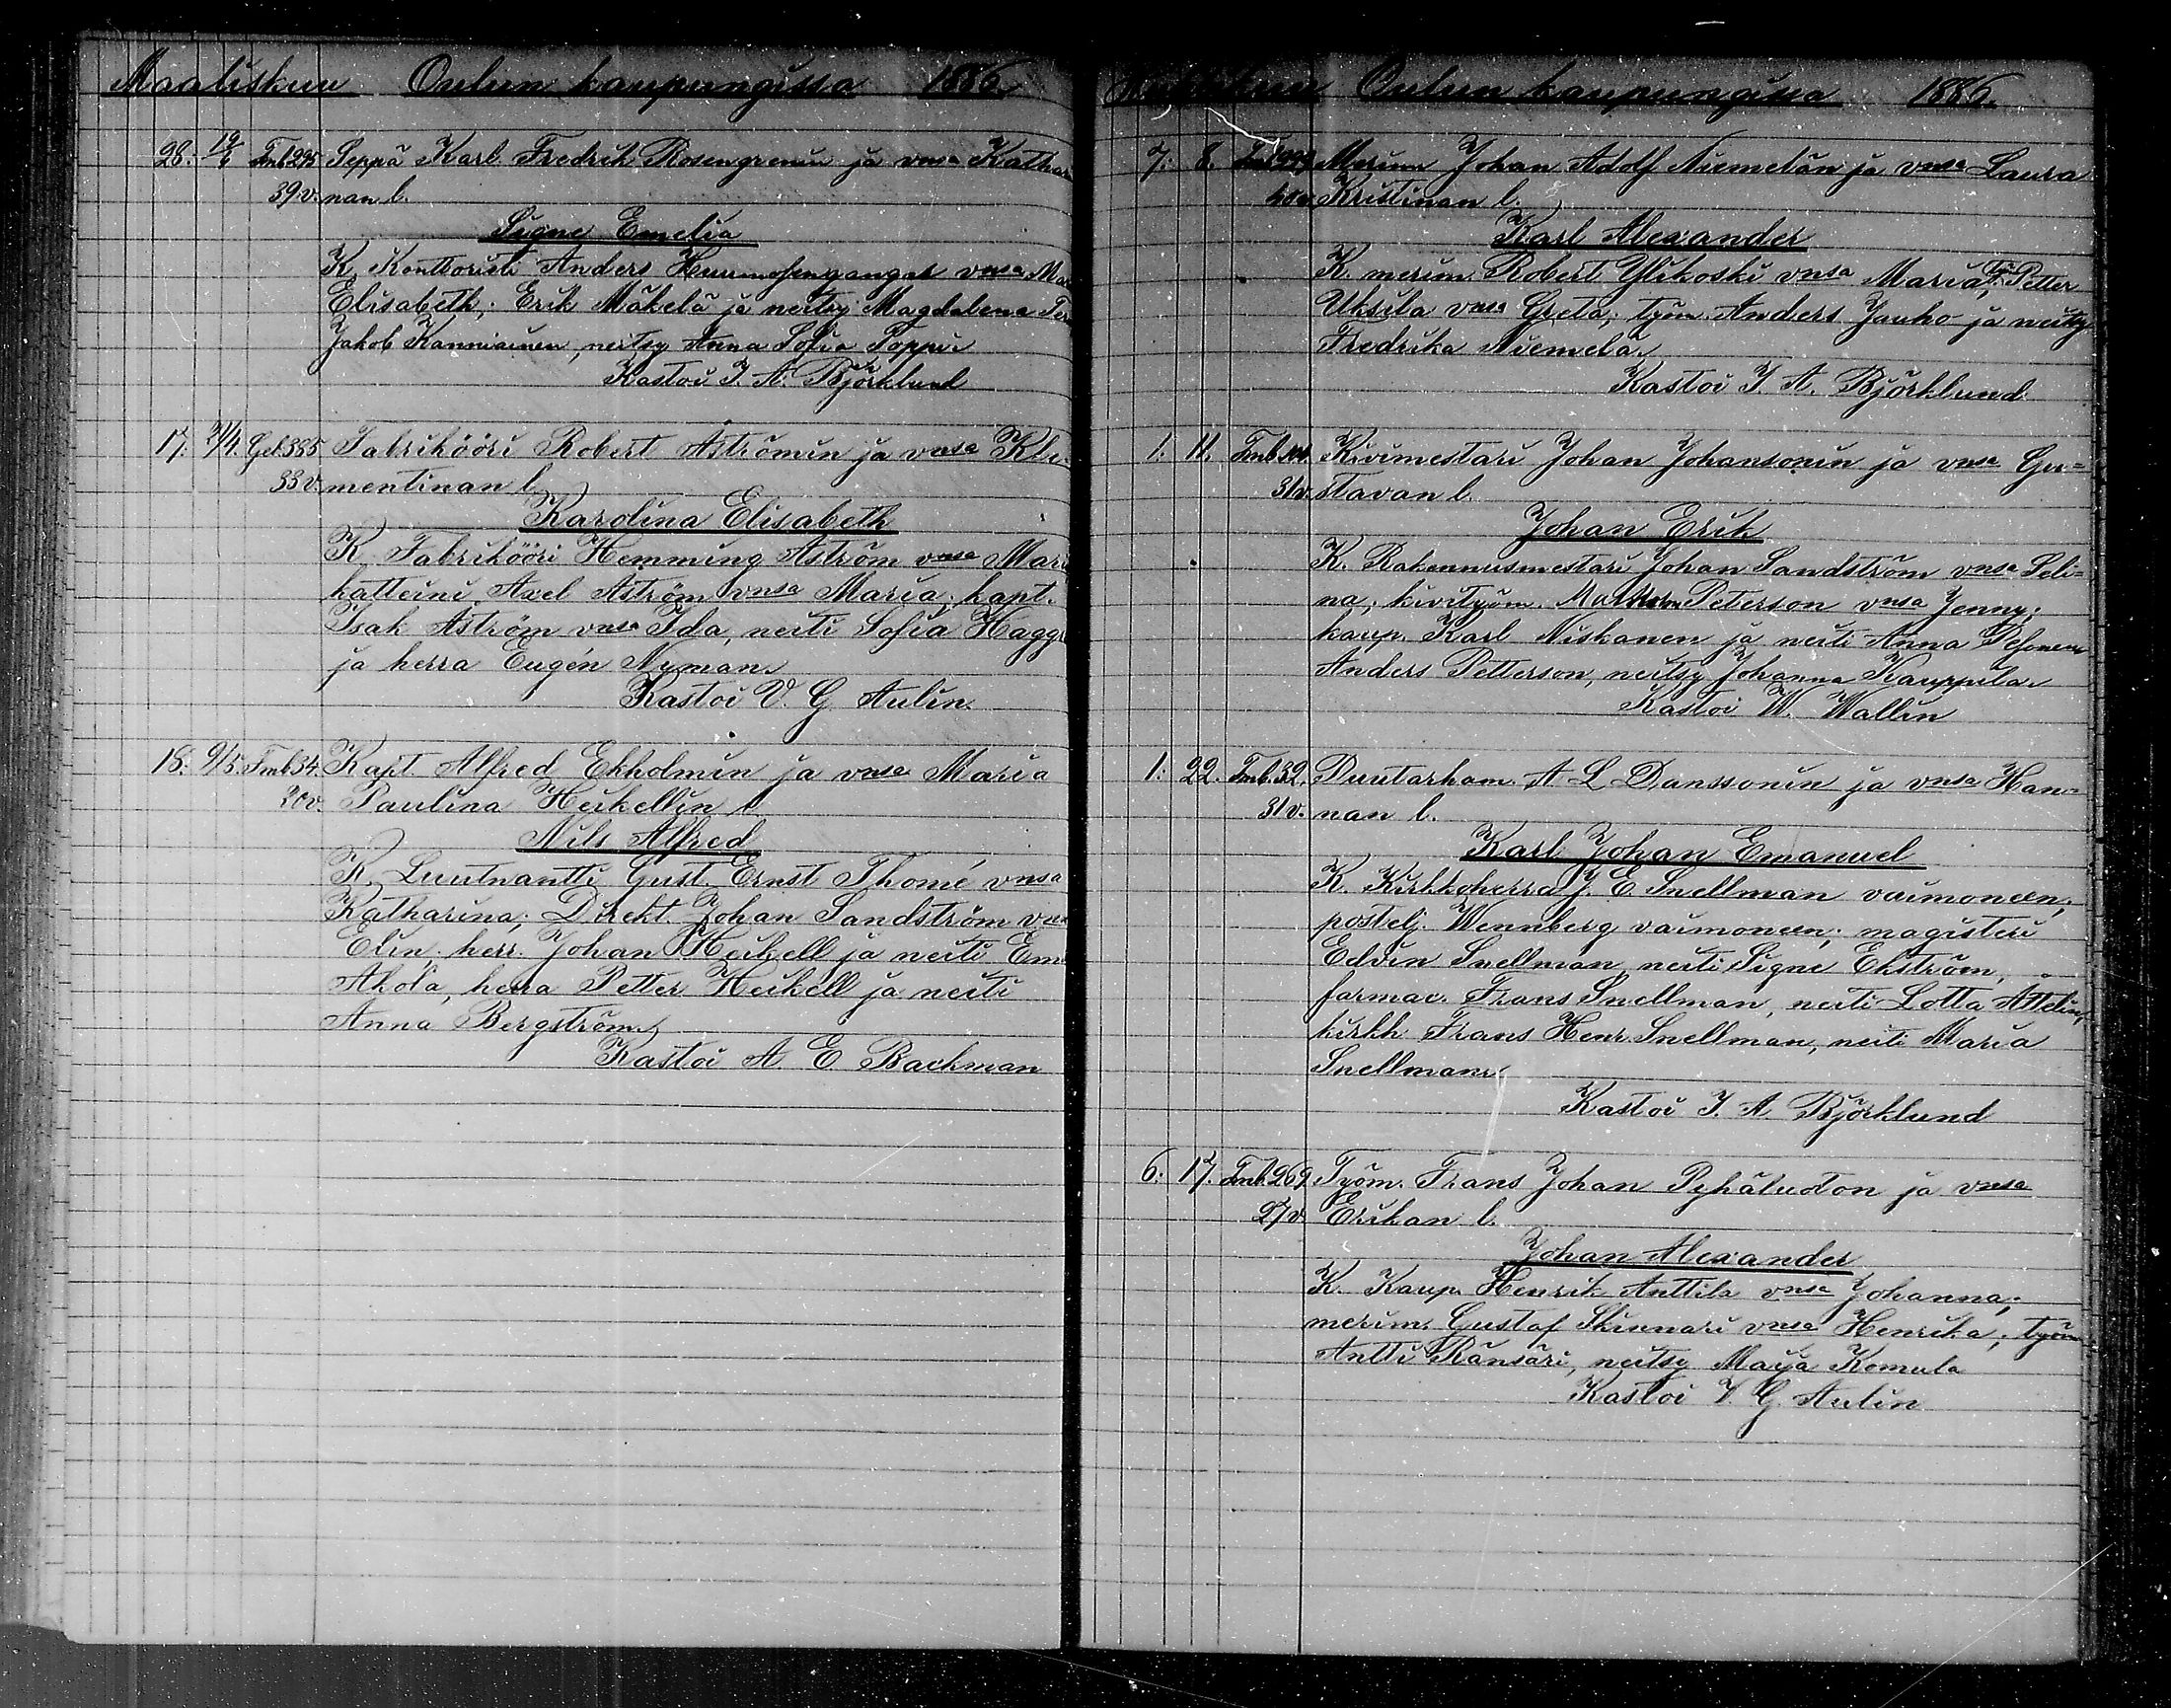 Maaliskuu Oulun kaupungissa 1886.
28. 19/6 Tmb. 295 Seppä Karl Fredrik Rosengrenin ja vnsa Katha
39 v. nan l.
Signe Emelia
K. Konttoristi Anders vnsa Ma
Elisabeth; Erik Mäkelä ja neitsy Magdalena
Jakob Kanniainen, neitsy Anna Sofia Toppi
Kastoi J. A. Björklund
17. 2/4. Gel. 385 Fabrikööri Robert Aströmin ja vnsa Kle-
33 v. mentinan l.
Karolina Elisabeth
K. Fabrikööri Hemming Aström vnsa Mari
katteini Axel Aström vnsa Maria; kapt.
Isak Aström vnsa Ida, neiti Sofia Hagg
ja herra Eugén Nyman.
Kastoi V. G. Aulin.
18. 9/5. Tmb. 34. Kapt. Alfred Ekholmin ja vnsa Maria
20 v. Paulina Heikellin l.
Nils Alfred
K. Luutnantti Gust. Ernst Thomé vnsa
Katharina; Direkt. Johan Sandström vnsa
Elin; herr. Johan Heikell ja neiti Em
Ahola, herra Petter Heikell ja neiti
Anna Bergström.
Kastoi A E Backman
Oulun kaupungissa 1886.
7. 8. Merim. Johan Adolf Niemelän ja vnsa Laura
40 v. Kristinan l.
Karl Alexander
K. merim. Robert Ylikoski vnsa Maria; työ. Petter
Uksila vnsa Greta; työm. Anders Jauho ja neitsy
Fredrika Niemelä.
Kastoi J. A. Björklund
1. 11. Kivimestari Johan Johansonin ja vnsa Gu=
31 v. stavan l.
Johan Erik
K. Rakennusmestari Johan Sandström vnsa Seli=
na; kivityöm. Peterson vnsa Jenny;
kaup. Karl Niskanen ja neiti Anna Pesonen
Anders Petterson, neitsy Johanna Kauppila
Kastoi W. Wallin
1. 22. Tmb. 32. Puutarham. A L Danssonin ja vnsa Han=
31 v. nan l.
Karl Johan Emanuel
K. Kirkkoherra J. E Snellman vaimoneen;
postelj. Wennberg vaimoneen; magisteri
Edvin Snellman, neiti Signe Ekström,
farmac. Frans Snellman, neiti Lotta Attelin,
kirkh. Frans Henr. Snellman, neiti Maria
Snellman.
Kastoi J. A. Björklund
6. 17. Tmb. 269 Työm. Frans Johan Pyhäluodon ja vnsa
27 v. Erikan l.
Johan Alexander
K. Kaup. Henrik Anttila vnsa Johanna;
merim. Gustaf Skinnari vnsa Henrika; työm
Antti Ränsäri, neitsy Maija Komula
Kastoi V. G. Aulin